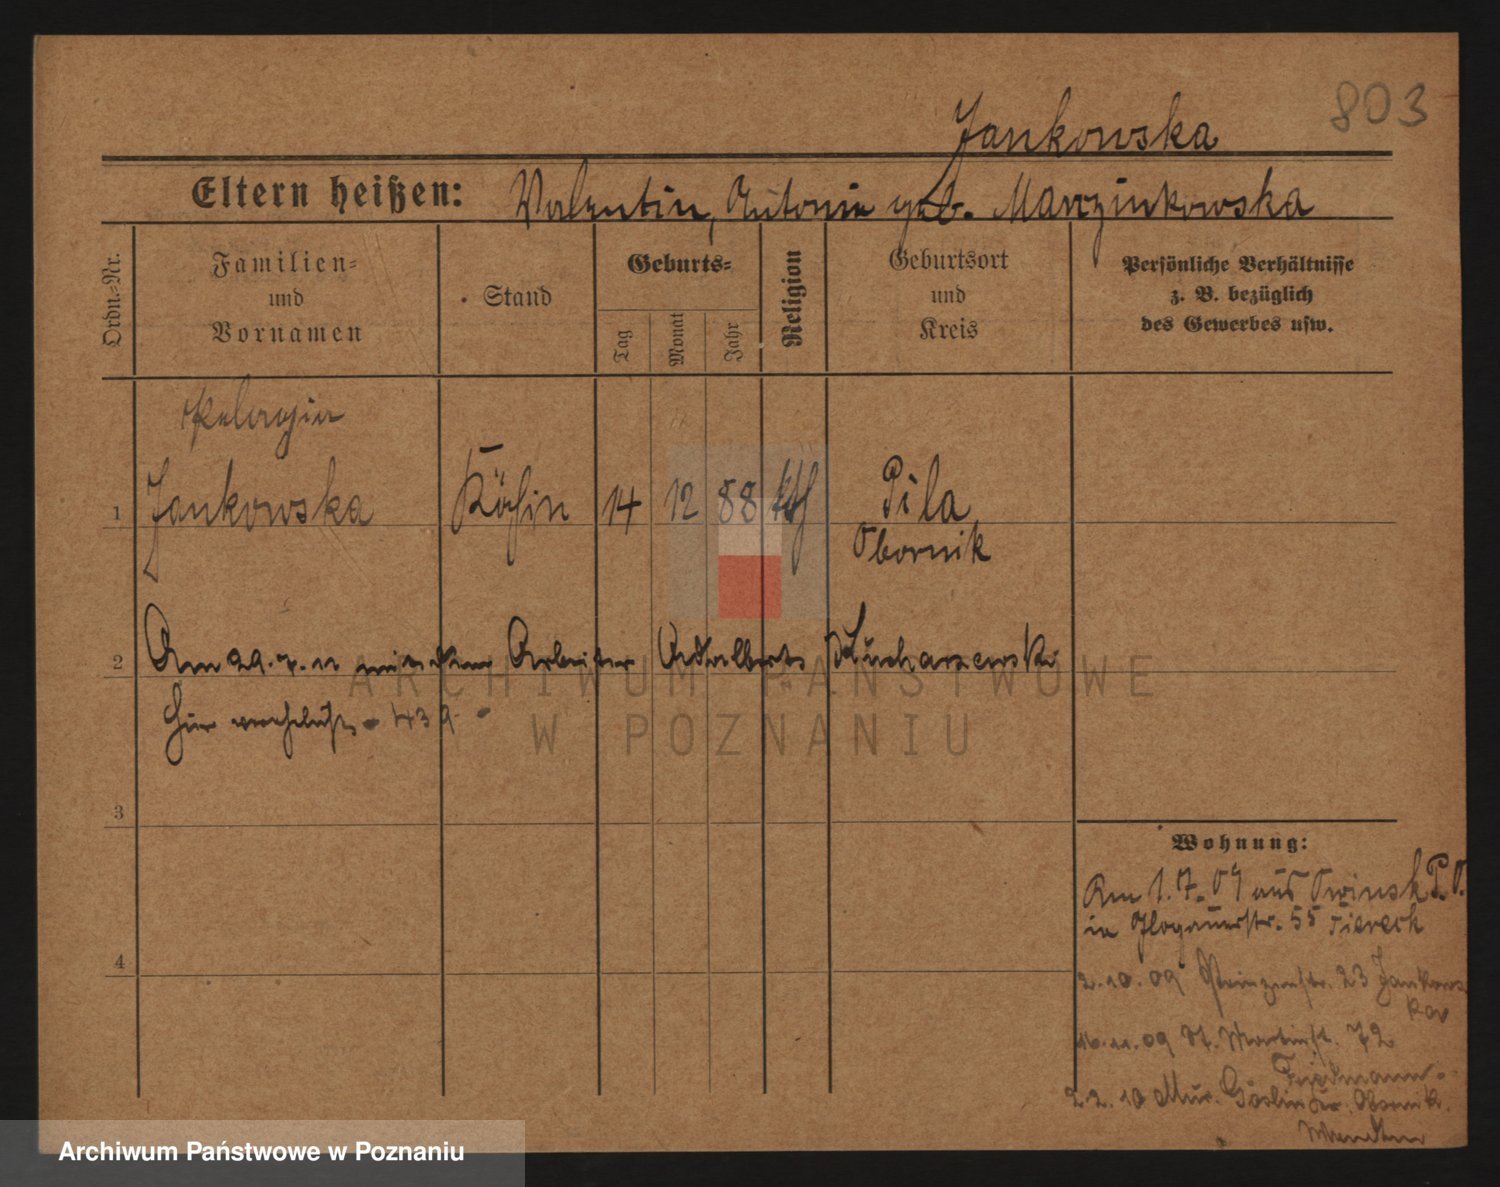 803
Jankowska
Eltern heißen: Valentin, Antonie geb. Marzinkowska
Ordn.-Nr.
Familien-
und
Vornamen
Stand
Geburts-
Tag
Monat
Jahr
Religion
Geburtsort
und
Kreis
Persönliche Verhältnisse
z. B. bezüglich
des Gewerbes usw.
Pelagia
1 Jankowska Köchin 14 12 88 kth Pila
Obornik
2 Am 29. 7. 11 mit dem Arbeiter Adalbert
hier verehelicht. 439
3
4
Wohnung:
Am 1.7.09 aus Owinsk P. O.
in Glogauerstr. 55 Viereck
2.10.09 Prinzenstr. 23 Jankows
16.11.09 St. Martinst. 72
Friedmann
2.2.10 Mur. Goslin Kr. Obornik.
ARCHIWUM PAŃSTWOWE
W POZNANIU
Archiwum Państwowe w Poznaniu